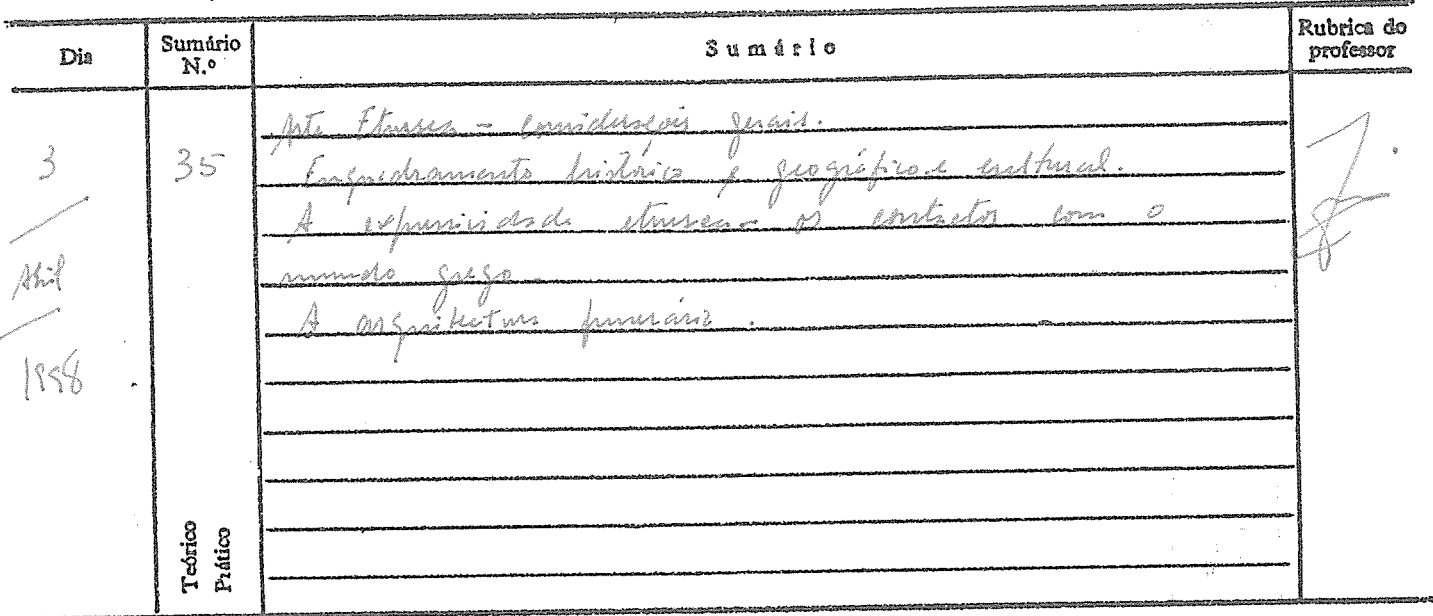 Dia
Sumário N.º
Sumário
Rubrica do professor
3
Abril
1998
35
Teórico
Prático
Arte Etrusca - considerações gerais.
Enquadramento histórico e geográfico e cultural.
A expressividade etrusca - os contactos com o
mundo grego.
A arquitectura funerária.